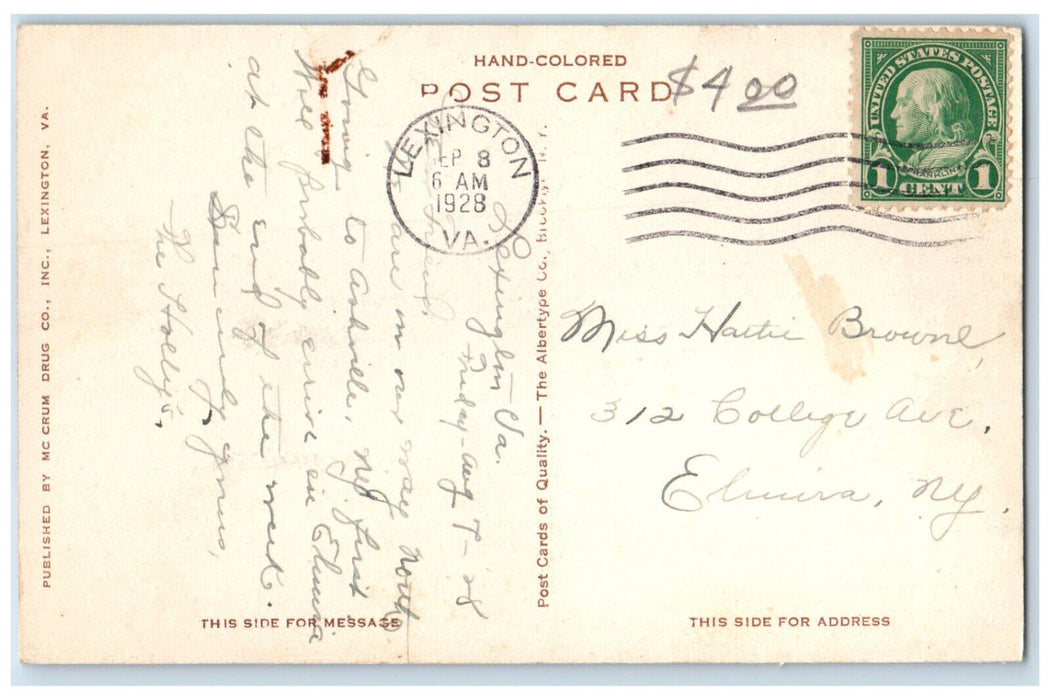 HAND-COLORED
POST CARD
$4.00
LEXINGTON
SEP 8
6 AM
1928
VA.
UNITED STATES POSTAGE
FRANKLIN
1 CENT 1
PUBLISHED BY MC CRUM DRUG CO., INC., LEXINGTON, VA.
Post Cards of Quality. — The Albertype Co., Brooklyn, N. Y.
Lexington Va.
Friday - Aug 7 - 28
friend,
are on our way north
Going to Ashville, NC first
Will probably arrive in Elmira
at the end of the week.
yours,
The Holly's,
Miss Hattie Browne,
312 College Ave,
Elmira, NY.
THIS SIDE FOR MESSAGE
THIS SIDE FOR ADDRESS